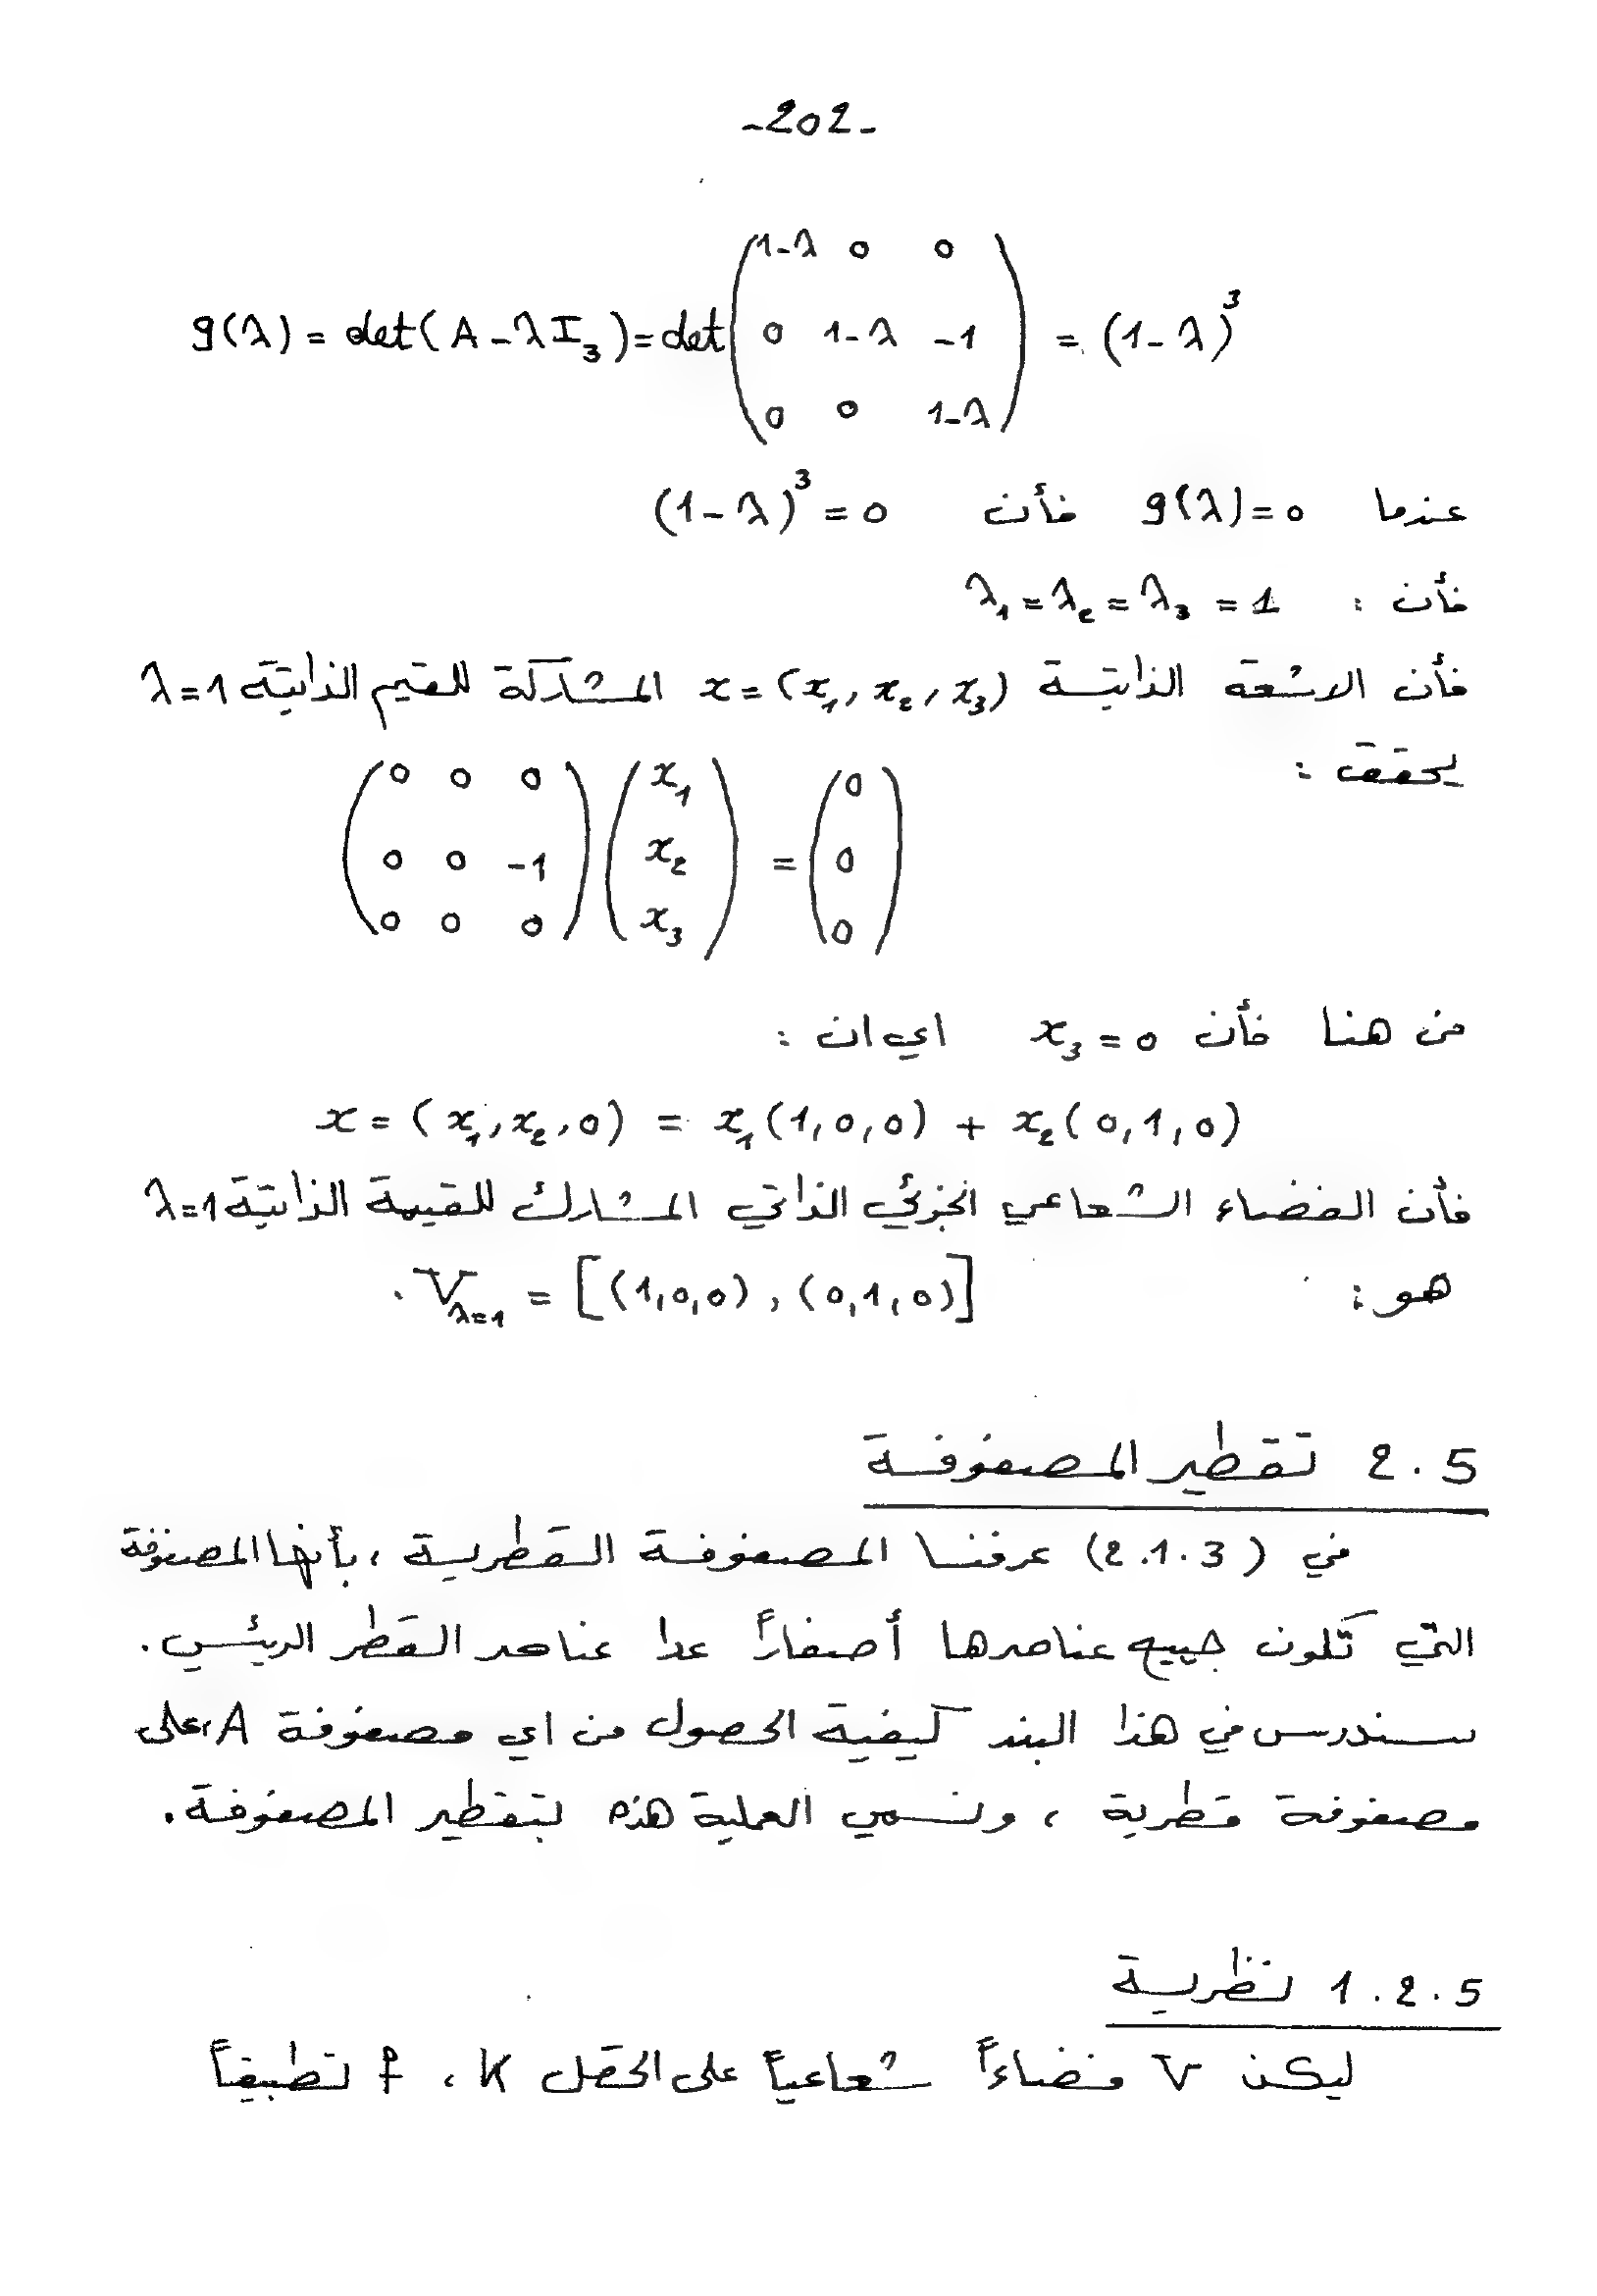 -202-
g(λ) = det(A - λI₃) = det
(1-λ 0 0
0 1-λ -1
0 0 1-λ)
= (1-λ)³
عندما g(λ)=0 فأن (1-λ)³ = 0
فأن : λ₁ = λ₂ = λ₃ = 1
فأن الاشعة الذاتية x = (x₁, x₂, x₃) المشاركة للقيم الذاتية λ=1
يحقق :
(0 0 0
0 0 -1
0 0 0)
(x₁
x₂
x₃)
=
(0
0
0)
من هنا فأن x₃ = 0 اي ان :
x = (x₁, x₂, 0) = x₁(1,0,0) + x₂(0,1,0)
فأن الفضاء الشعاعي الجزئي الذاتي المشارك للقيمة الذاتية λ=1
هو : V_{λ=1} = [(1,0,0), (0,1,0)] .
2.5 تقطير المصفوفة
في (2.1.3) عرفنا المصفوفة القطرية ، بأنها المصفوفة
التي تكون جميع عناصرها أصفاراً عدا عناصر القطر الرئيسي .
سندرس في هذا البند كيفية الحصول من اي مصفوفة A، على
مصفوفة قطرية ، ونسمي العملية هذه بتقطير المصفوفة .
1.2.5 نظرية
ليكن V فضاءاً شعاعياً على الحقل K ، f تطبيقاً